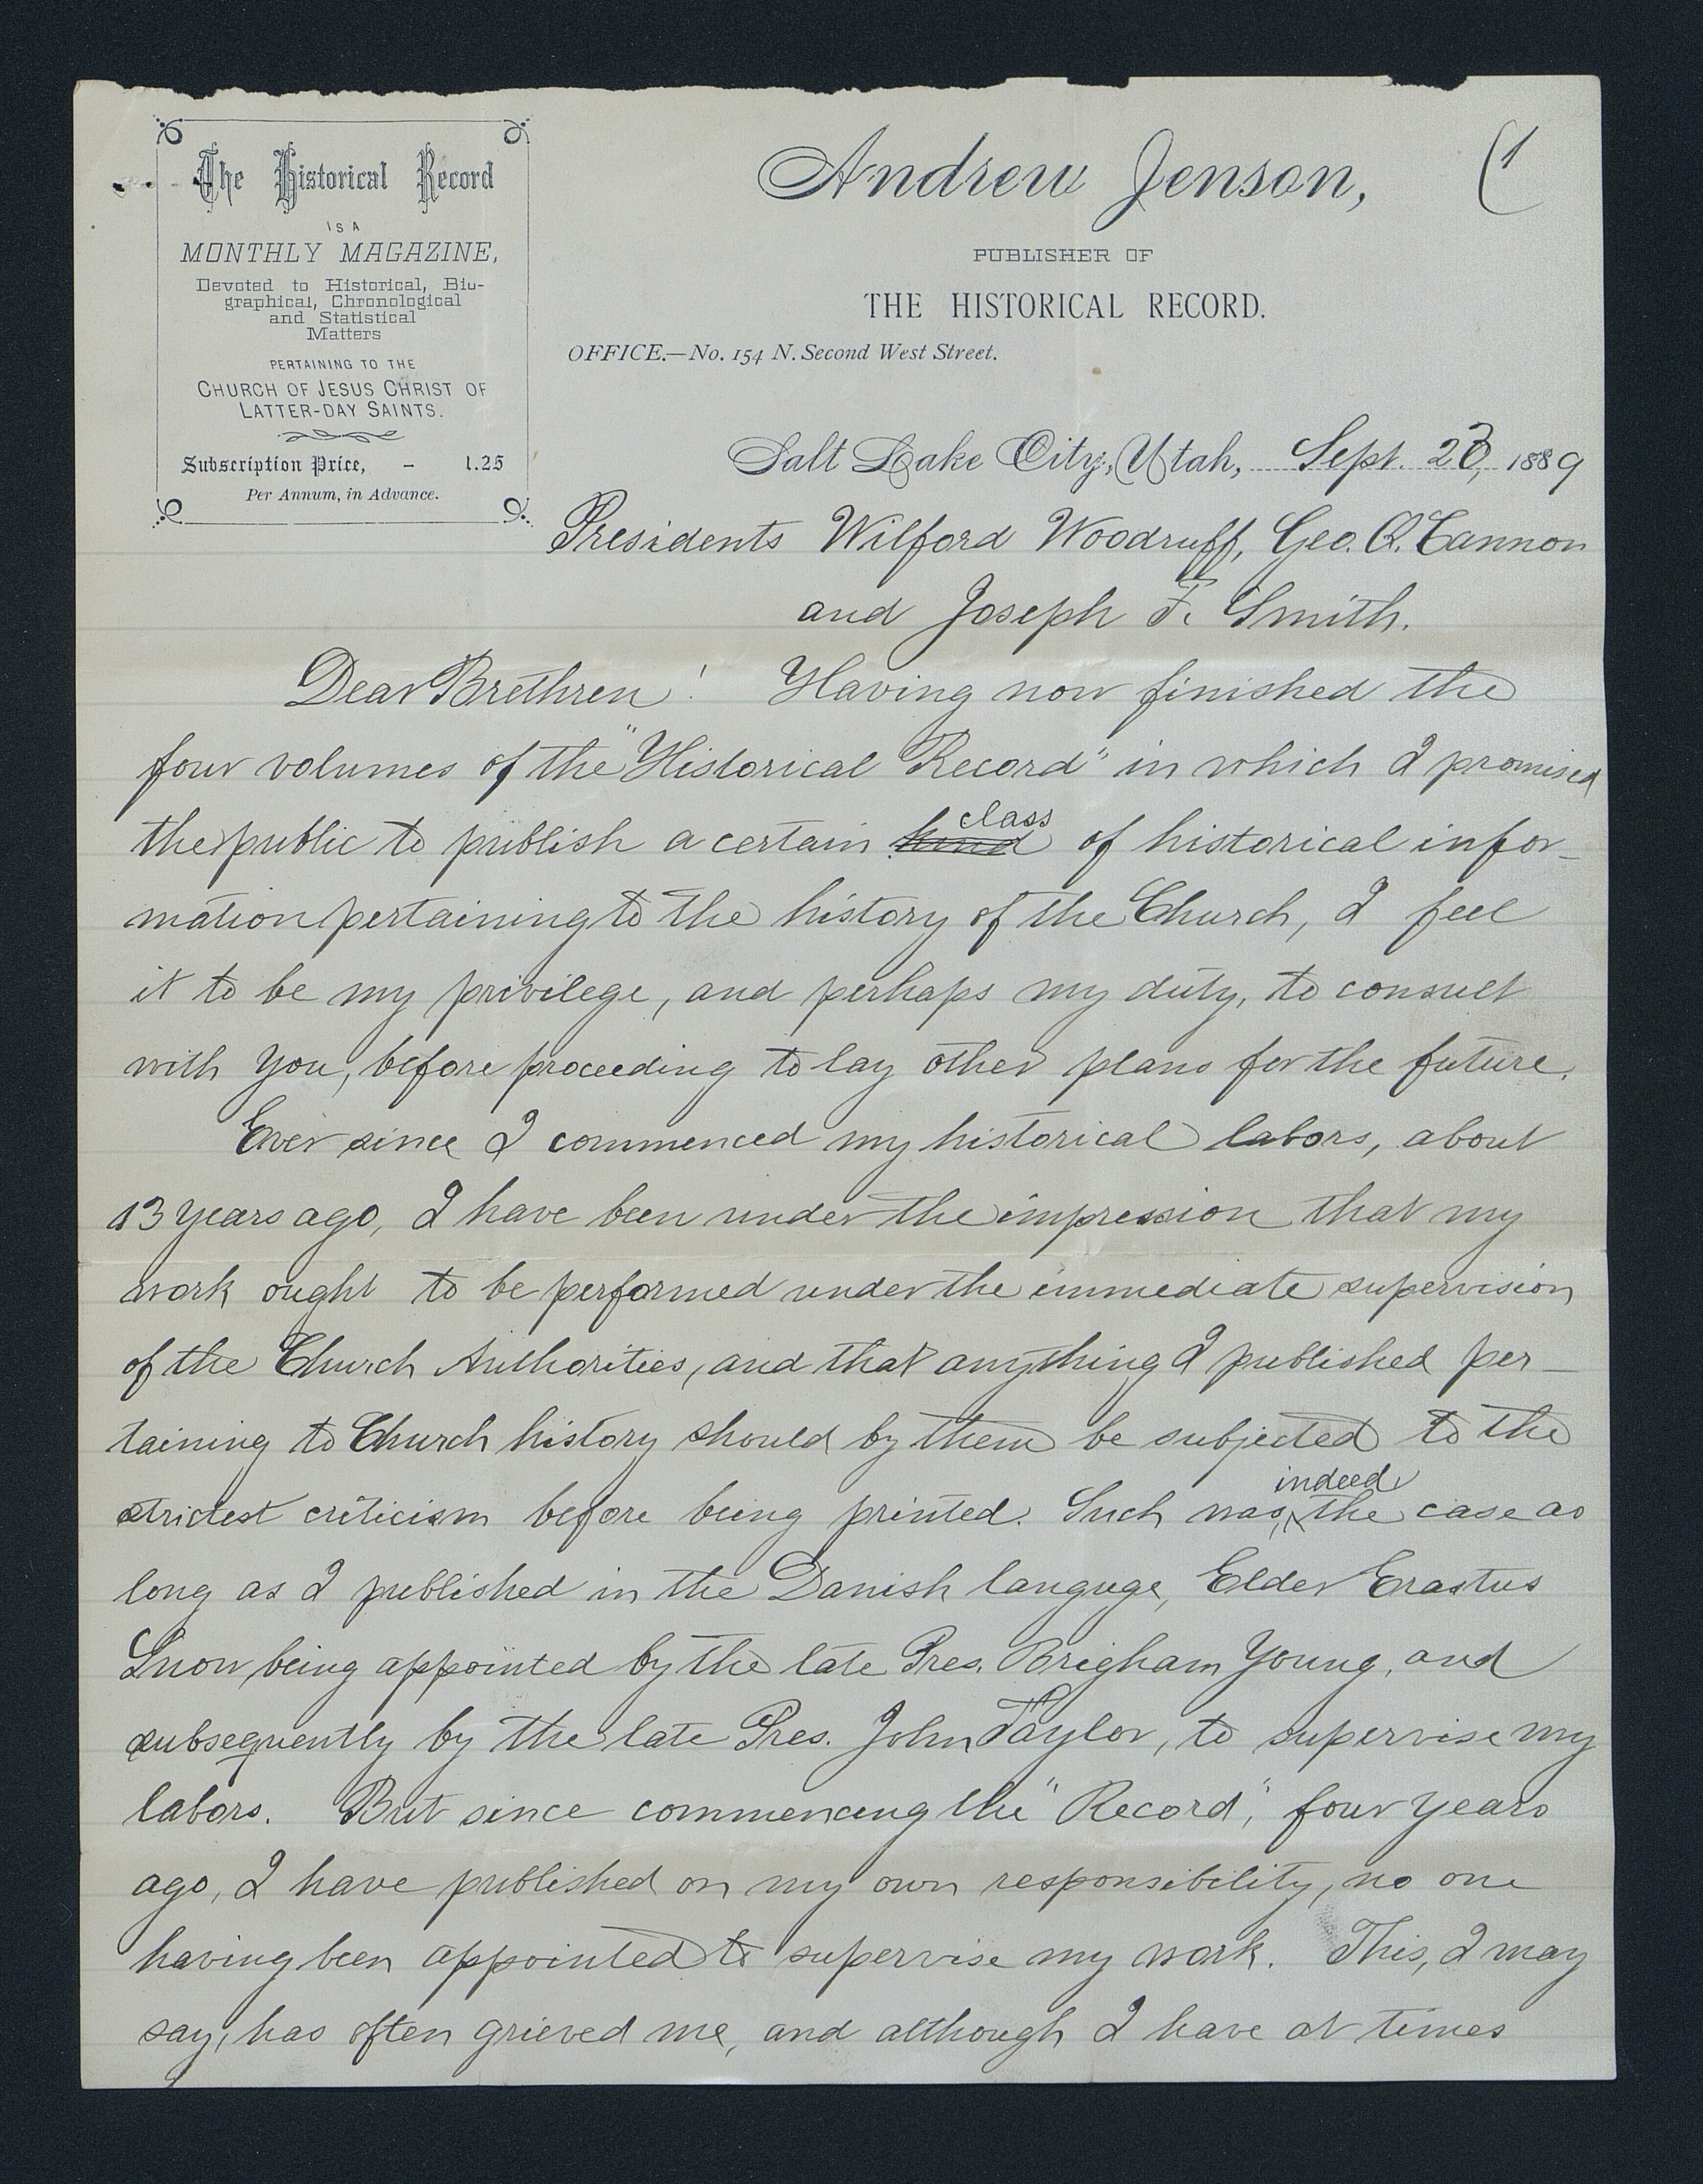 The Historical Record
IS A
MONTHLY MAGAZINE,
Devoted to Historical, Bio-
graphical, Chronological
and Statistical
Matters
PERTAINING TO THE
CHURCH OF JESUS CHRIST OF
LATTER-DAY SAINTS.
Subscription Price, - 1.25
Per Annum, in Advance.
Andrew Jenson,
(1
PUBLISHER OF
THE HISTORICAL RECORD.
OFFICE.—No. 154 N. Second West Street.
Salt Lake City, Utah, Sept. 23, 1889
Presidents Wilford Woodruff, Geo. Q. Cannon
and Joseph F. Smith.
Dear Brethren! Having now finished the
four volumes of the "Historical Record" in which I promised
the public to publish a certain kind class of historical infor-
mation pertaining to the history of the Church, I feel
it to be my privilege, and perhaps my duty, to consult
with you, before proceeding to lay other plans for the future.
Ever since I commenced my historical labors, about
13 years ago, I have been under the impression that my
work ought to be performed under the immediate supervision
of the Church Authorities, and that anything I published per-
taining to Church history should by them be subjected to the
strictest criticism before being printed. Such was, indeed the case as
long as I published in the Danish languge, Elder Erastus
Snow being appointed by the late Pres. Brigham Young, and
subsequently by the late Pres. John Taylor, to supervise my
labors. But since commencing the "Record", four years
ago, I have published on my own responsibility, no one
having been appointed to supervise my work. This, I may
say, has often grieved me, and although I have at times